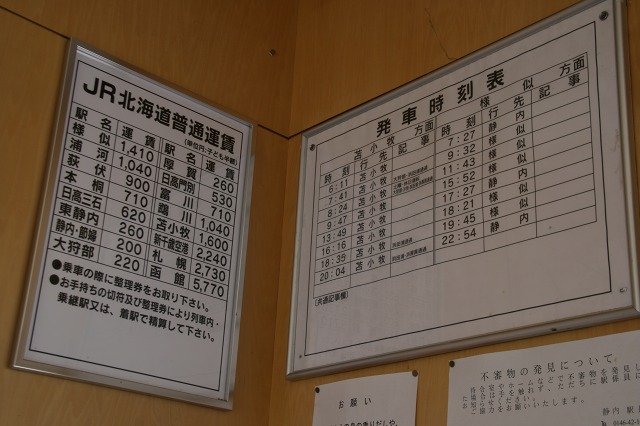 JR北海道普通運賃
(単位円:子ども半額)
駅名 運賃 駅名 運賃
様似 1,410 厚賀 260
浦河 1,040 日高門別 530
荻伏 900 富川 710
本桐 710 鵡川 1,040
日高三石 620 苫小牧 1,600
東静内 260 新千歳空港 2,240
静内・節婦 200 札幌 2,730
大狩部 220 函館 5,770
●乗車の際に整理券をお取り下さい。
●お手持ちの切符及び整理券により列車内・
乗継駅又は、着駅で精算して下さい。
発車時刻表
苫小牧方面 様似方面
時刻 行先 記事 時刻 行先 記事
6:11 苫小牧 7:27 静内
7:41 苫小牧 9:32 様似
8:24 苫小牧 11:43 様似
9:47 苫小牧 15:52 様似
13:49 苫小牧 17:27 静内
16:16 苫小牧 18:21 様似
18:35 苫小牧 19:45 様似
20:04 苫小牧 22:54 静内
(共通記事欄)
お願い
不審物の発見について。
静内駅